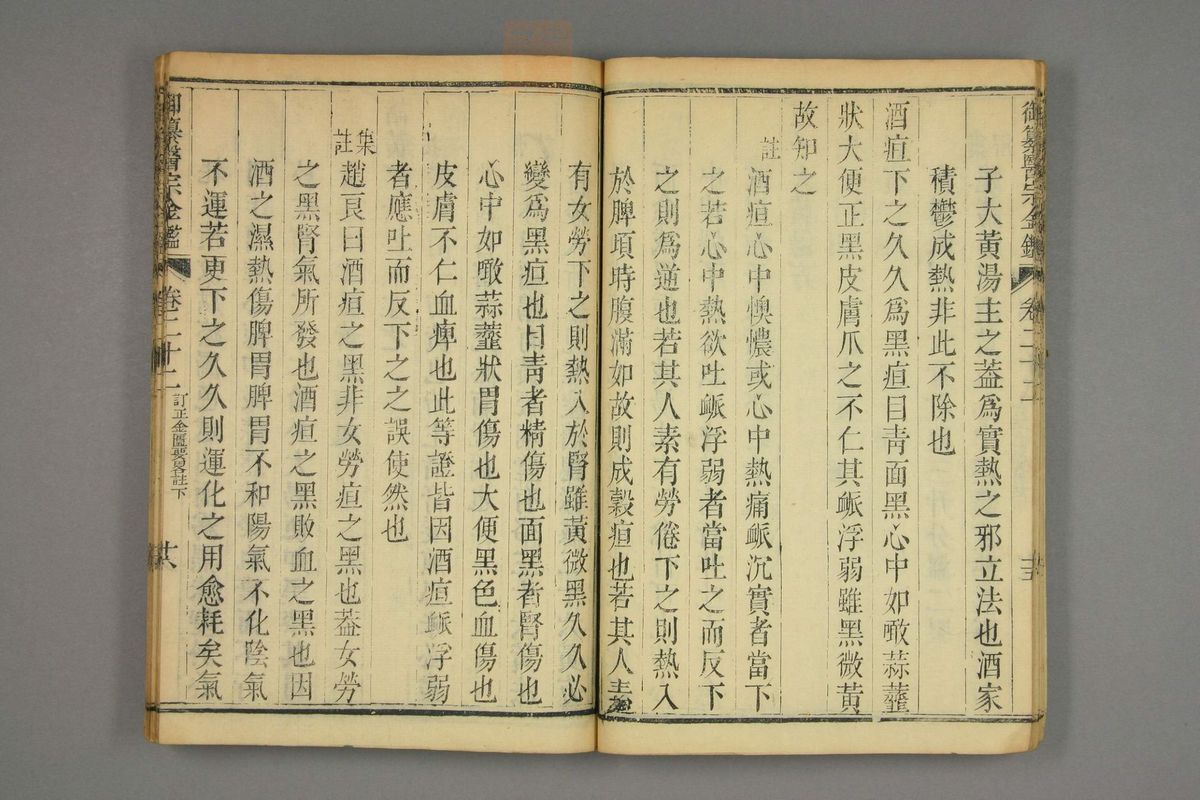 御纂醫宗金鑑 卷二十二
子大黃湯主之葢爲實熱之邪立法也酒家
積鬱成熱非此不除也
酒疸下之久久爲黑疸目靑面黑心中如噉蒜虀
狀大便正黑皮膚爪之不仁其脈浮弱雖黑微黃
故知之
註 酒疸心中懊憹或心中熱痛脈沉實者當下
之若心中熱欲吐脈浮弱者當吐之而反下
之則爲逆也若其人素有勞倦下之則熱入
於脾頃時腹滿如故則成穀疸也若其人
有女勞下之則熱入於腎雖黃微黑久久必
變爲黑疸也目靑者精傷也面黑者腎傷也
心中如噉蒜虀狀胃傷也大便黑色血傷也
皮膚不仁血痺也此等證皆因酒疸脈浮弱
者應吐而反下之之誤使然也
集註 趙良曰酒疸之黑非女勞疸之黑也葢女勞
之黑腎氣所發也酒疸之黑敗血之黑也因
酒之濕熱傷脾胃脾胃不和陽氣不化陰氣
不運若更下之久久則運化之用愈耗矣氣
御纂醫宗金鑑 卷二十二 訂正金匱要畧註下